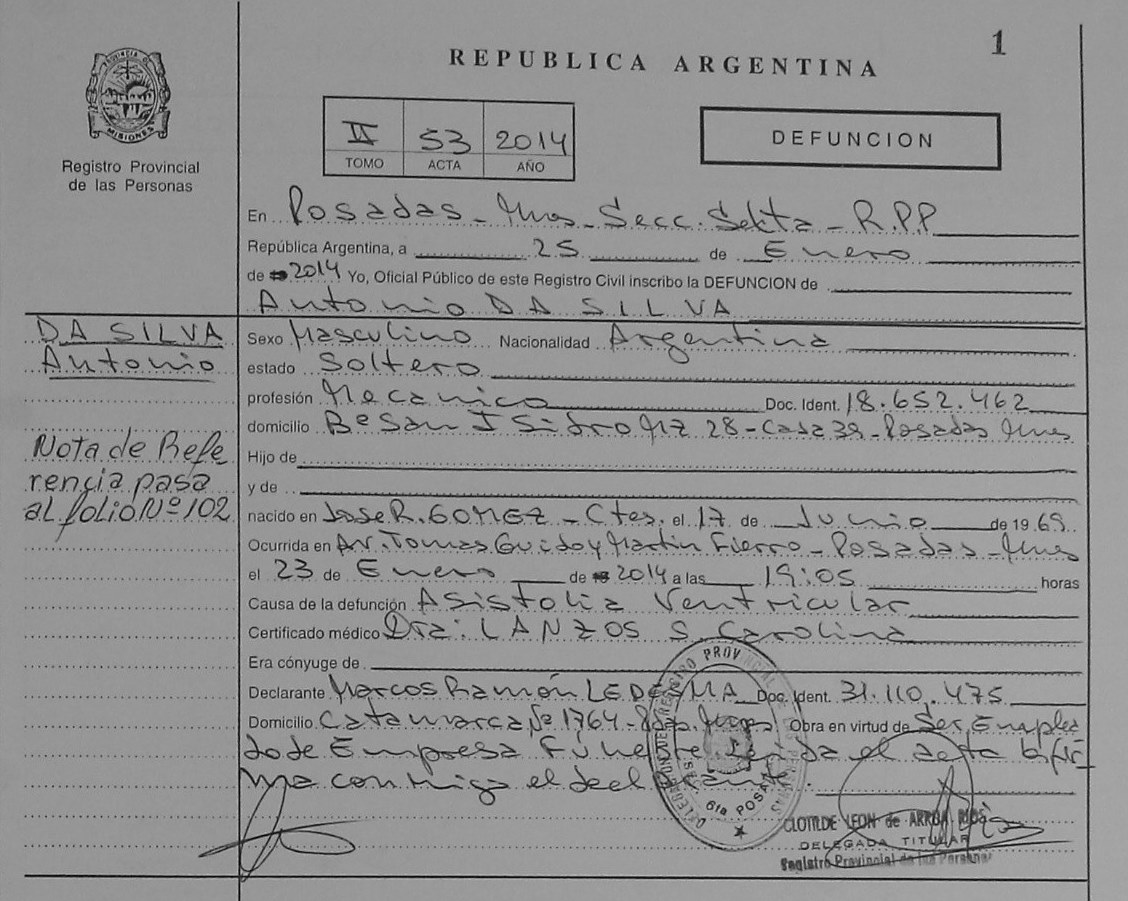 1
REPUBLICA ARGENTINA
PROVINCIA DE MISIONES
Registro Provincial
de las Personas
II 53 2014
TOMO ACTA AÑO
DEFUNCION
En Posadas - Mnes - Secc. Sekta - R.P.P
República Argentina, a 25 de Enero
de 2014 Yo, Oficial Público de este Registro Civil inscribo la DEFUNCION de
Antonio DA SILVA
DA SILVA
Antonio
Nota de Refe
rencia pasa
al folio Nº 102
Sexo Masculino Nacionalidad Argentina
estado Soltero
profesión Mecanico Doc. Ident. 18.652.462
domicilio Bº San Isidro Mz 28 - Casa 39 - Posadas Mnes
Hijo de
y de
nacido en Jose R. GOMEZ - Ctes. el 17 de Junio de 1969
Ocurrida en Av. Tomas Guido y Martin Fierro - Posadas - Mnes
el 23 de Enero de 2014 a las 19:05 horas
Causa de la defunción Asistolia Ventricular
Certificado médico Dra: LANZOS S. Carolina
Era cónyuge de
Declarante Marcos Ramón LEDESMA Doc. Ident. 31.110.475
Domicilio Catamarca Nº 1764 - Obra en virtud de Ser Emplea
do de Empresa Fúnebre el acta la fir
ma conmigo el declarante.
6ta POSADAS
CLOTILDE LEON de
DELEGADA TITULAR
Registro Provincial de las Personas